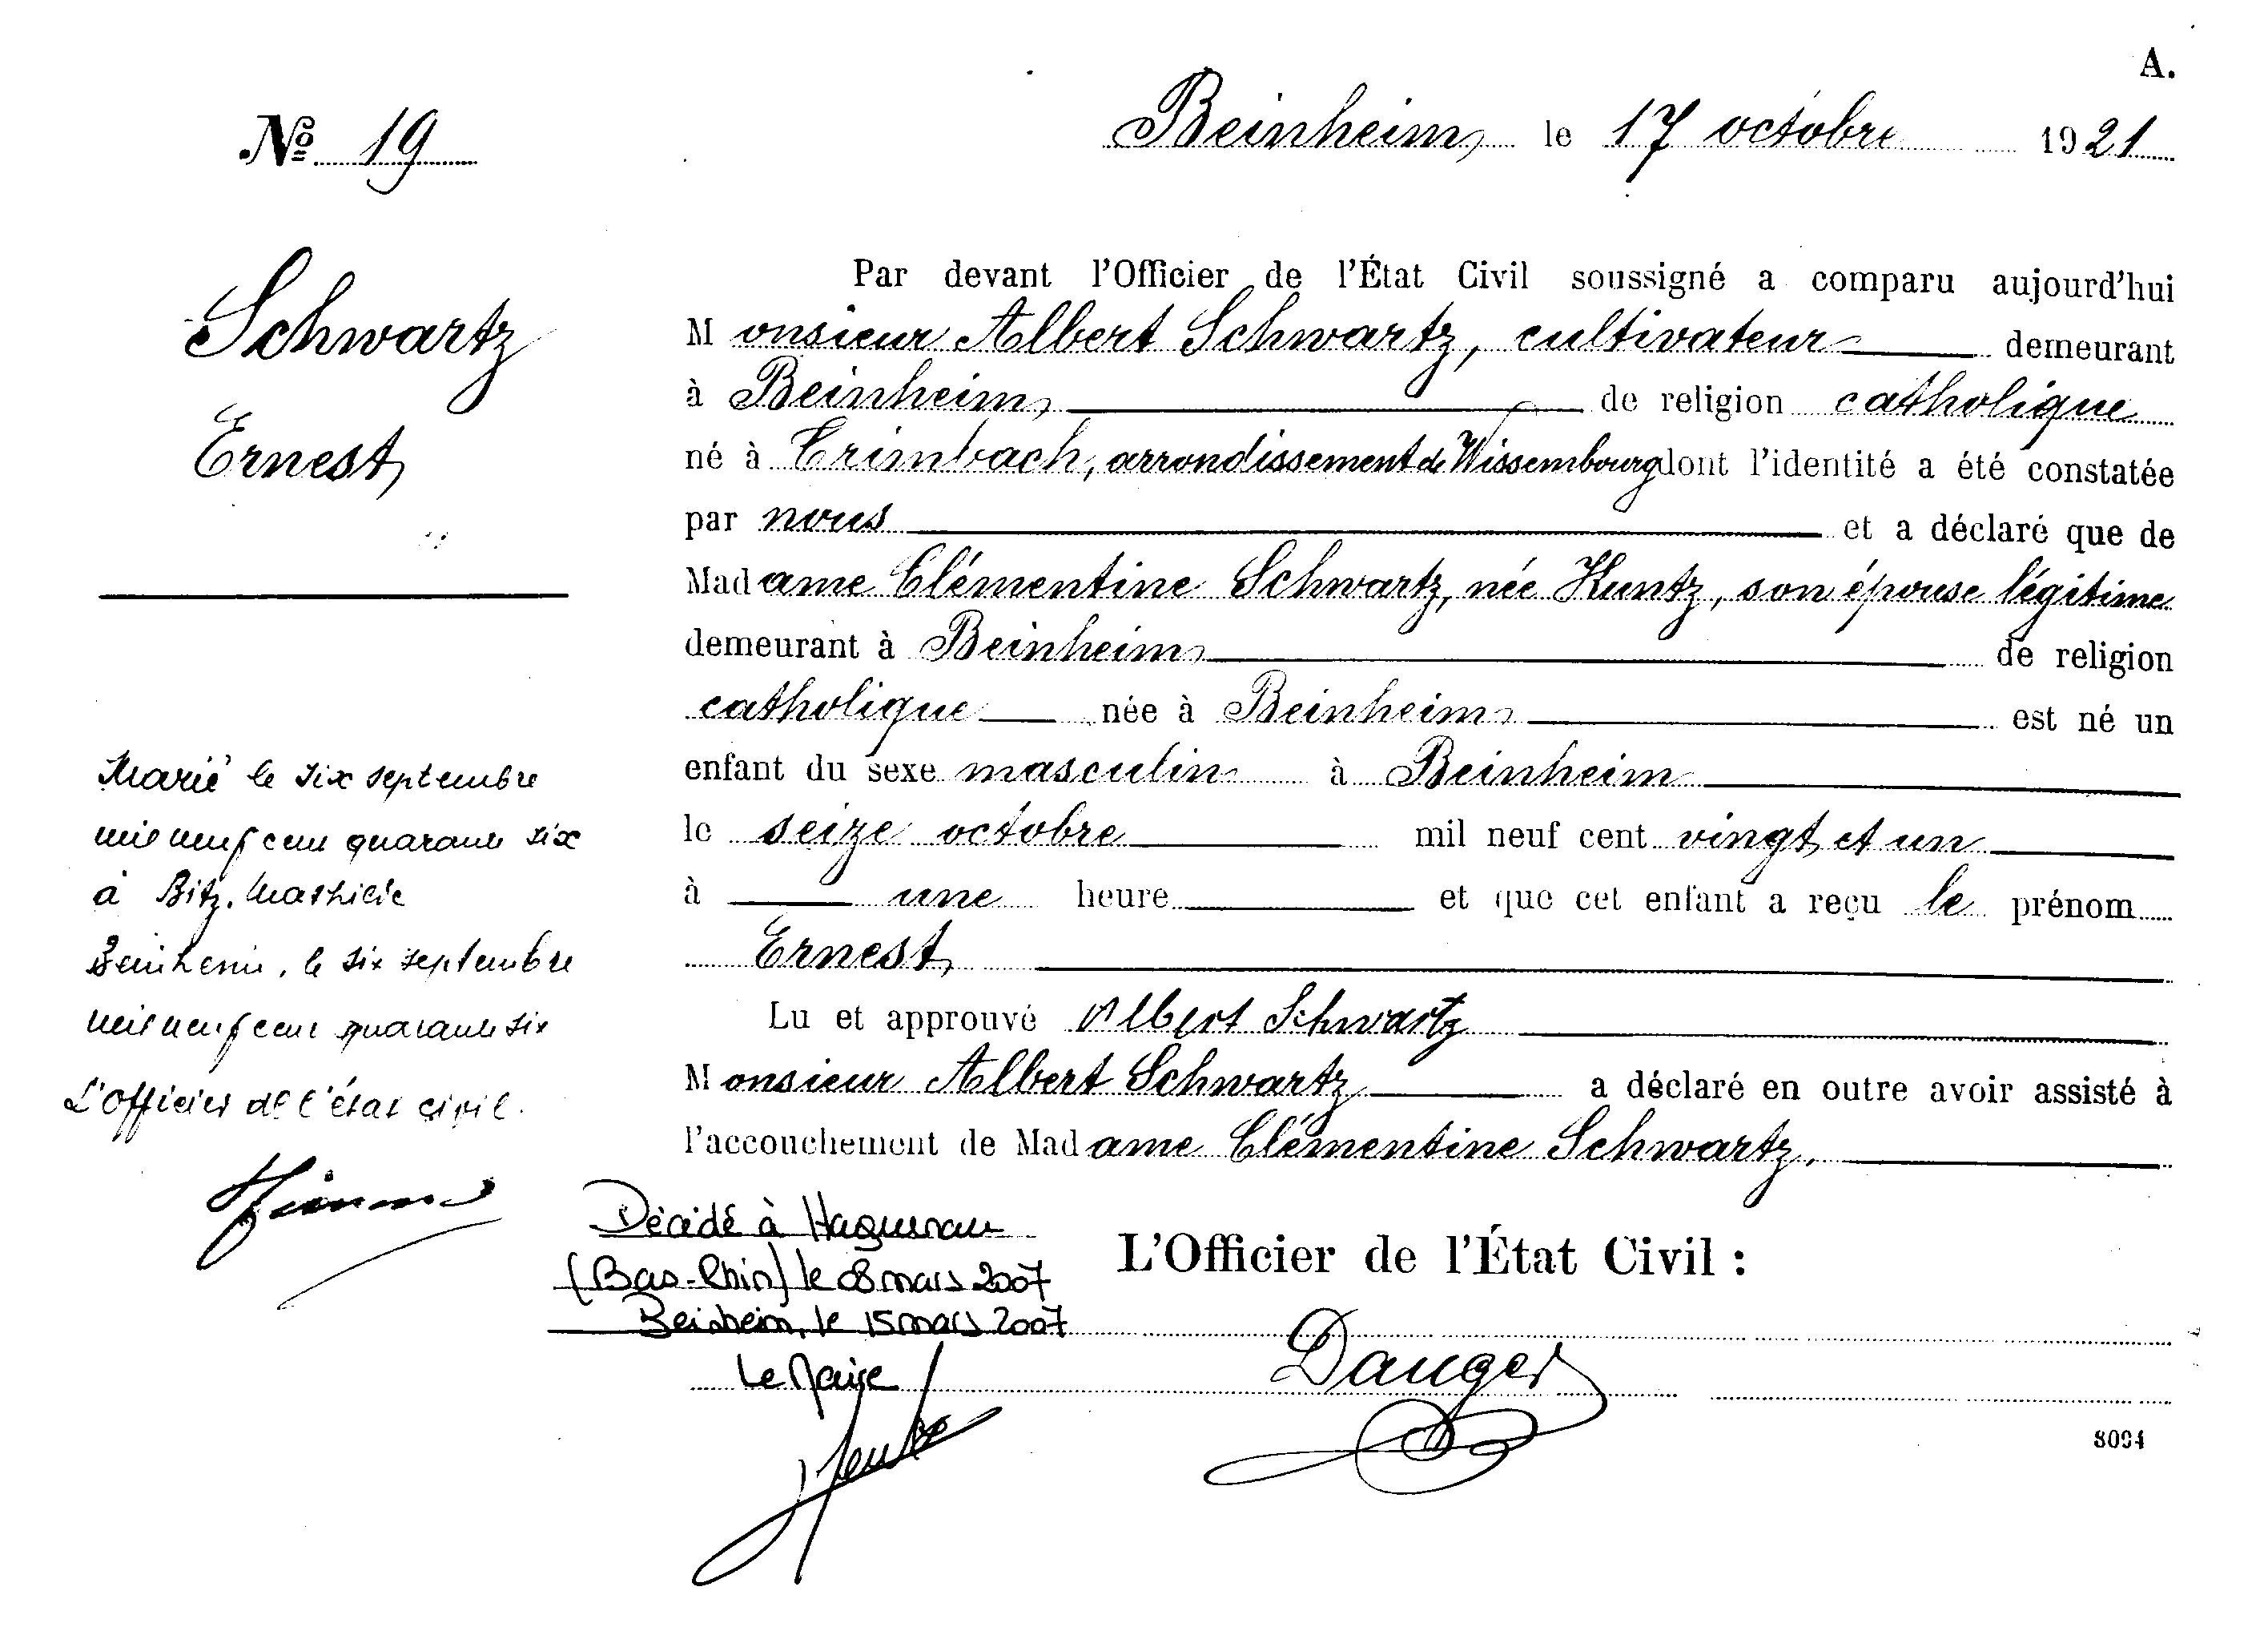 A.
Nº 19
Beinheim, le 17 octobre 1921
Schwartz
Ernest
Par devant l'Officier de l'État Civil soussigné a comparu aujourd'hui
Monsieur Albert Schwartz, cultivateur demeurant
à Beinheim, de religion catholique
né à Trimbach, arrondissement de Wissembourg dont l'identité a été constatée
par nous et a déclaré que de
Madame Clémentine Schwartz, née Kuntz, son épouse légitime
demeurant à Beinheim de religion
catholique née à Beinheim est né un
enfant du sexe masculin à Beinheim
le seize octobre mil neuf cent vingt et un
à une heure et que cet enfant a reçu le prénom
Ernest
Lu et approuvé Albert Schwartz
Monsieur Albert Schwartz a déclaré en outre avoir assisté à
l'accouchement de Madame Clémentine Schwartz.
Marié le six septembre
mil neuf cent quarante six
à Bitz. Mathilde
Beinheim, le six septembre
mil neuf cent quarante six
L'officier de l'état civil.
Décédé à Haguenau
(Bas-Rhin) le 08 mars 2007
Beinheim, le 15 mars 2007
Le Maire
L'Officier de l'État Civil :
Danger
8094